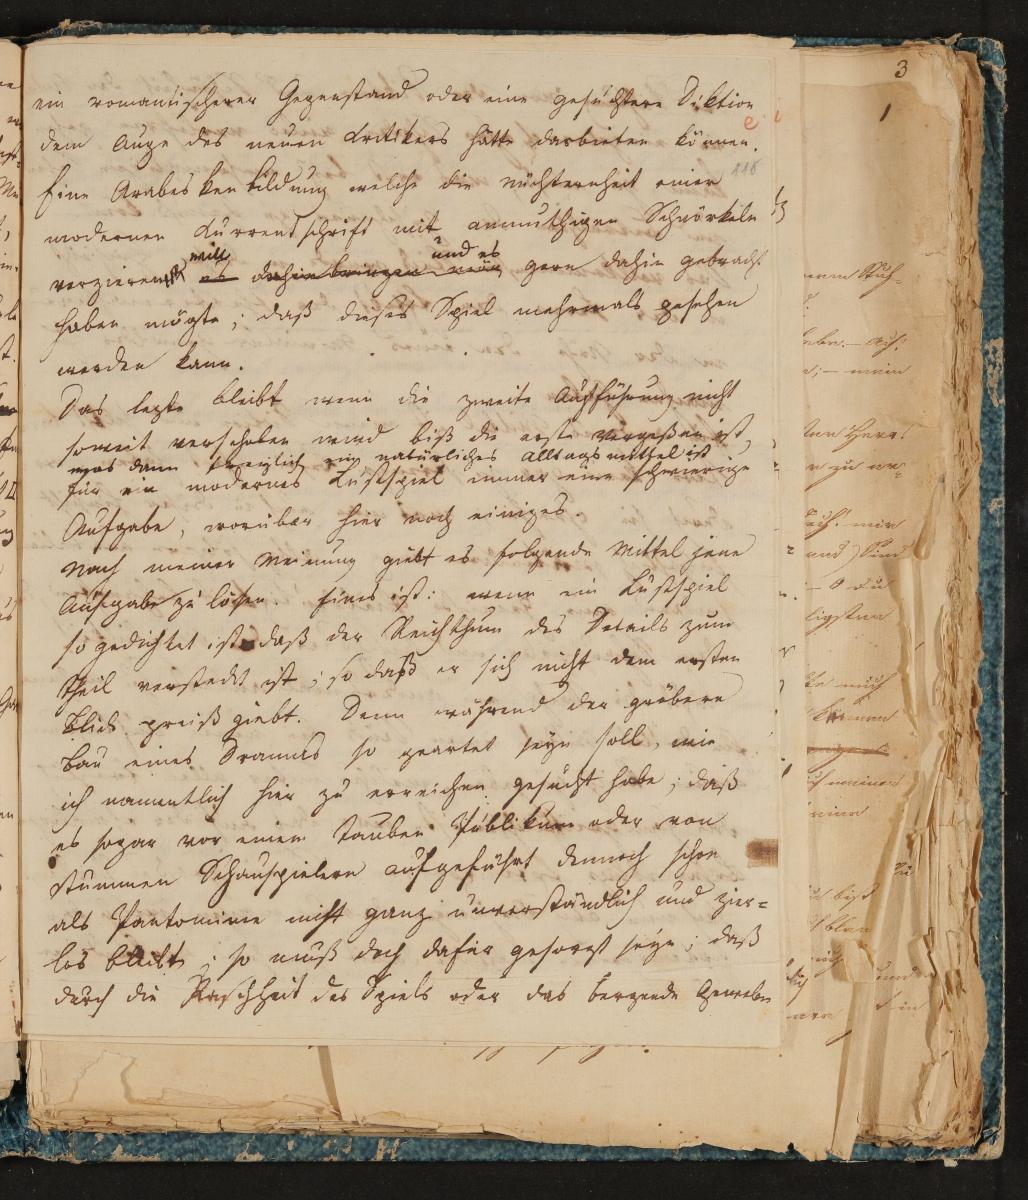 3
1
ein romantischerer Gegenstand oder eine gesuchtere Diktion
dem Auge des neuen Kritikers hätte darbieten können.
e
118
Eine Arabeskenbildung welche die Nüchternheit einer
modernen Kurrentschrift mit anmuthigen Schnörkeln
verzieren will und es
es dahin bringen gern dahin gebracht
haben mögte; daß dieses Spiel mehrmals gesehen
werden kann.
Das lezte bleibt wenn die zweite Aufführung nicht
soweit verschoben wird biß die erste vergeßen ist,
was dann freylich ein natürliches Alltagsmittel ist
für ein modernes Lustspiel immer eine schwierige
Aufgabe, worüber hier noch einiges.
Nach meiner Meinung giebt es folgende Mittel jene
Aufgabe zu lösen. Eines ist: wenn ein Lustspiel
so gedichtet ist daß der Reichthum des Details zum
Theil versteckt ist; so daß er sich nicht dem ersten
Blick preiß giebt. Denn während der gröbere
Bau eines Dramas so geartet seyn soll, wie
ich namentlich hier zu erreichen gesucht habe; daß
es sogar vor einem tauben Publikum oder von
stummen Schauspielern aufgeführt dennoch schon
als Pantomime nicht ganz unverständlich und zier=
los bleibt; so muß doch dafür gesorgt seyn; daß
durch die Raschheit des Spiels oder das